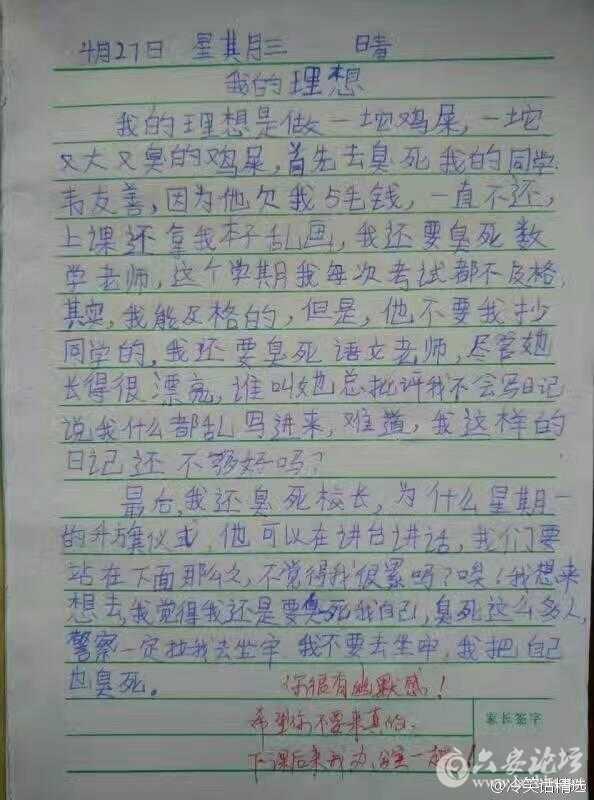 4月27日 星期三 晴
我的理想
我的理想是做一坨鸡屎，一坨
又大又臭的鸡屎，首先去臭死我的同学
韦友善，因为他欠我5毛钱，一直不还，
上课还拿我本子乱画，我还要臭死数
学老师，这个学期我每次考试都不及格，
其实，我能及格的，但是，他不要我抄
同学的，我还要臭死语文老师，尽管她
长得很漂亮，谁叫她总批评我不会写日记
说我什么都乱写进来，难道，我这样的
日记还不够好吗？
最后，我还臭死校长，为什么星期一
的升旗仪式，他可以在讲台讲话，我们要
站在下面那么久，不觉得我很累吗？唉！我想来
想去，我觉得我还是要臭死我自己，臭死这么多人，
警察一定拉我去坐牢，我不要去坐牢，我把自己
也臭死。
你很有幽默感！
希望你不要来真的，
下课后来我办公室一趟！
家长签字
六安论坛
@冷笑话精选